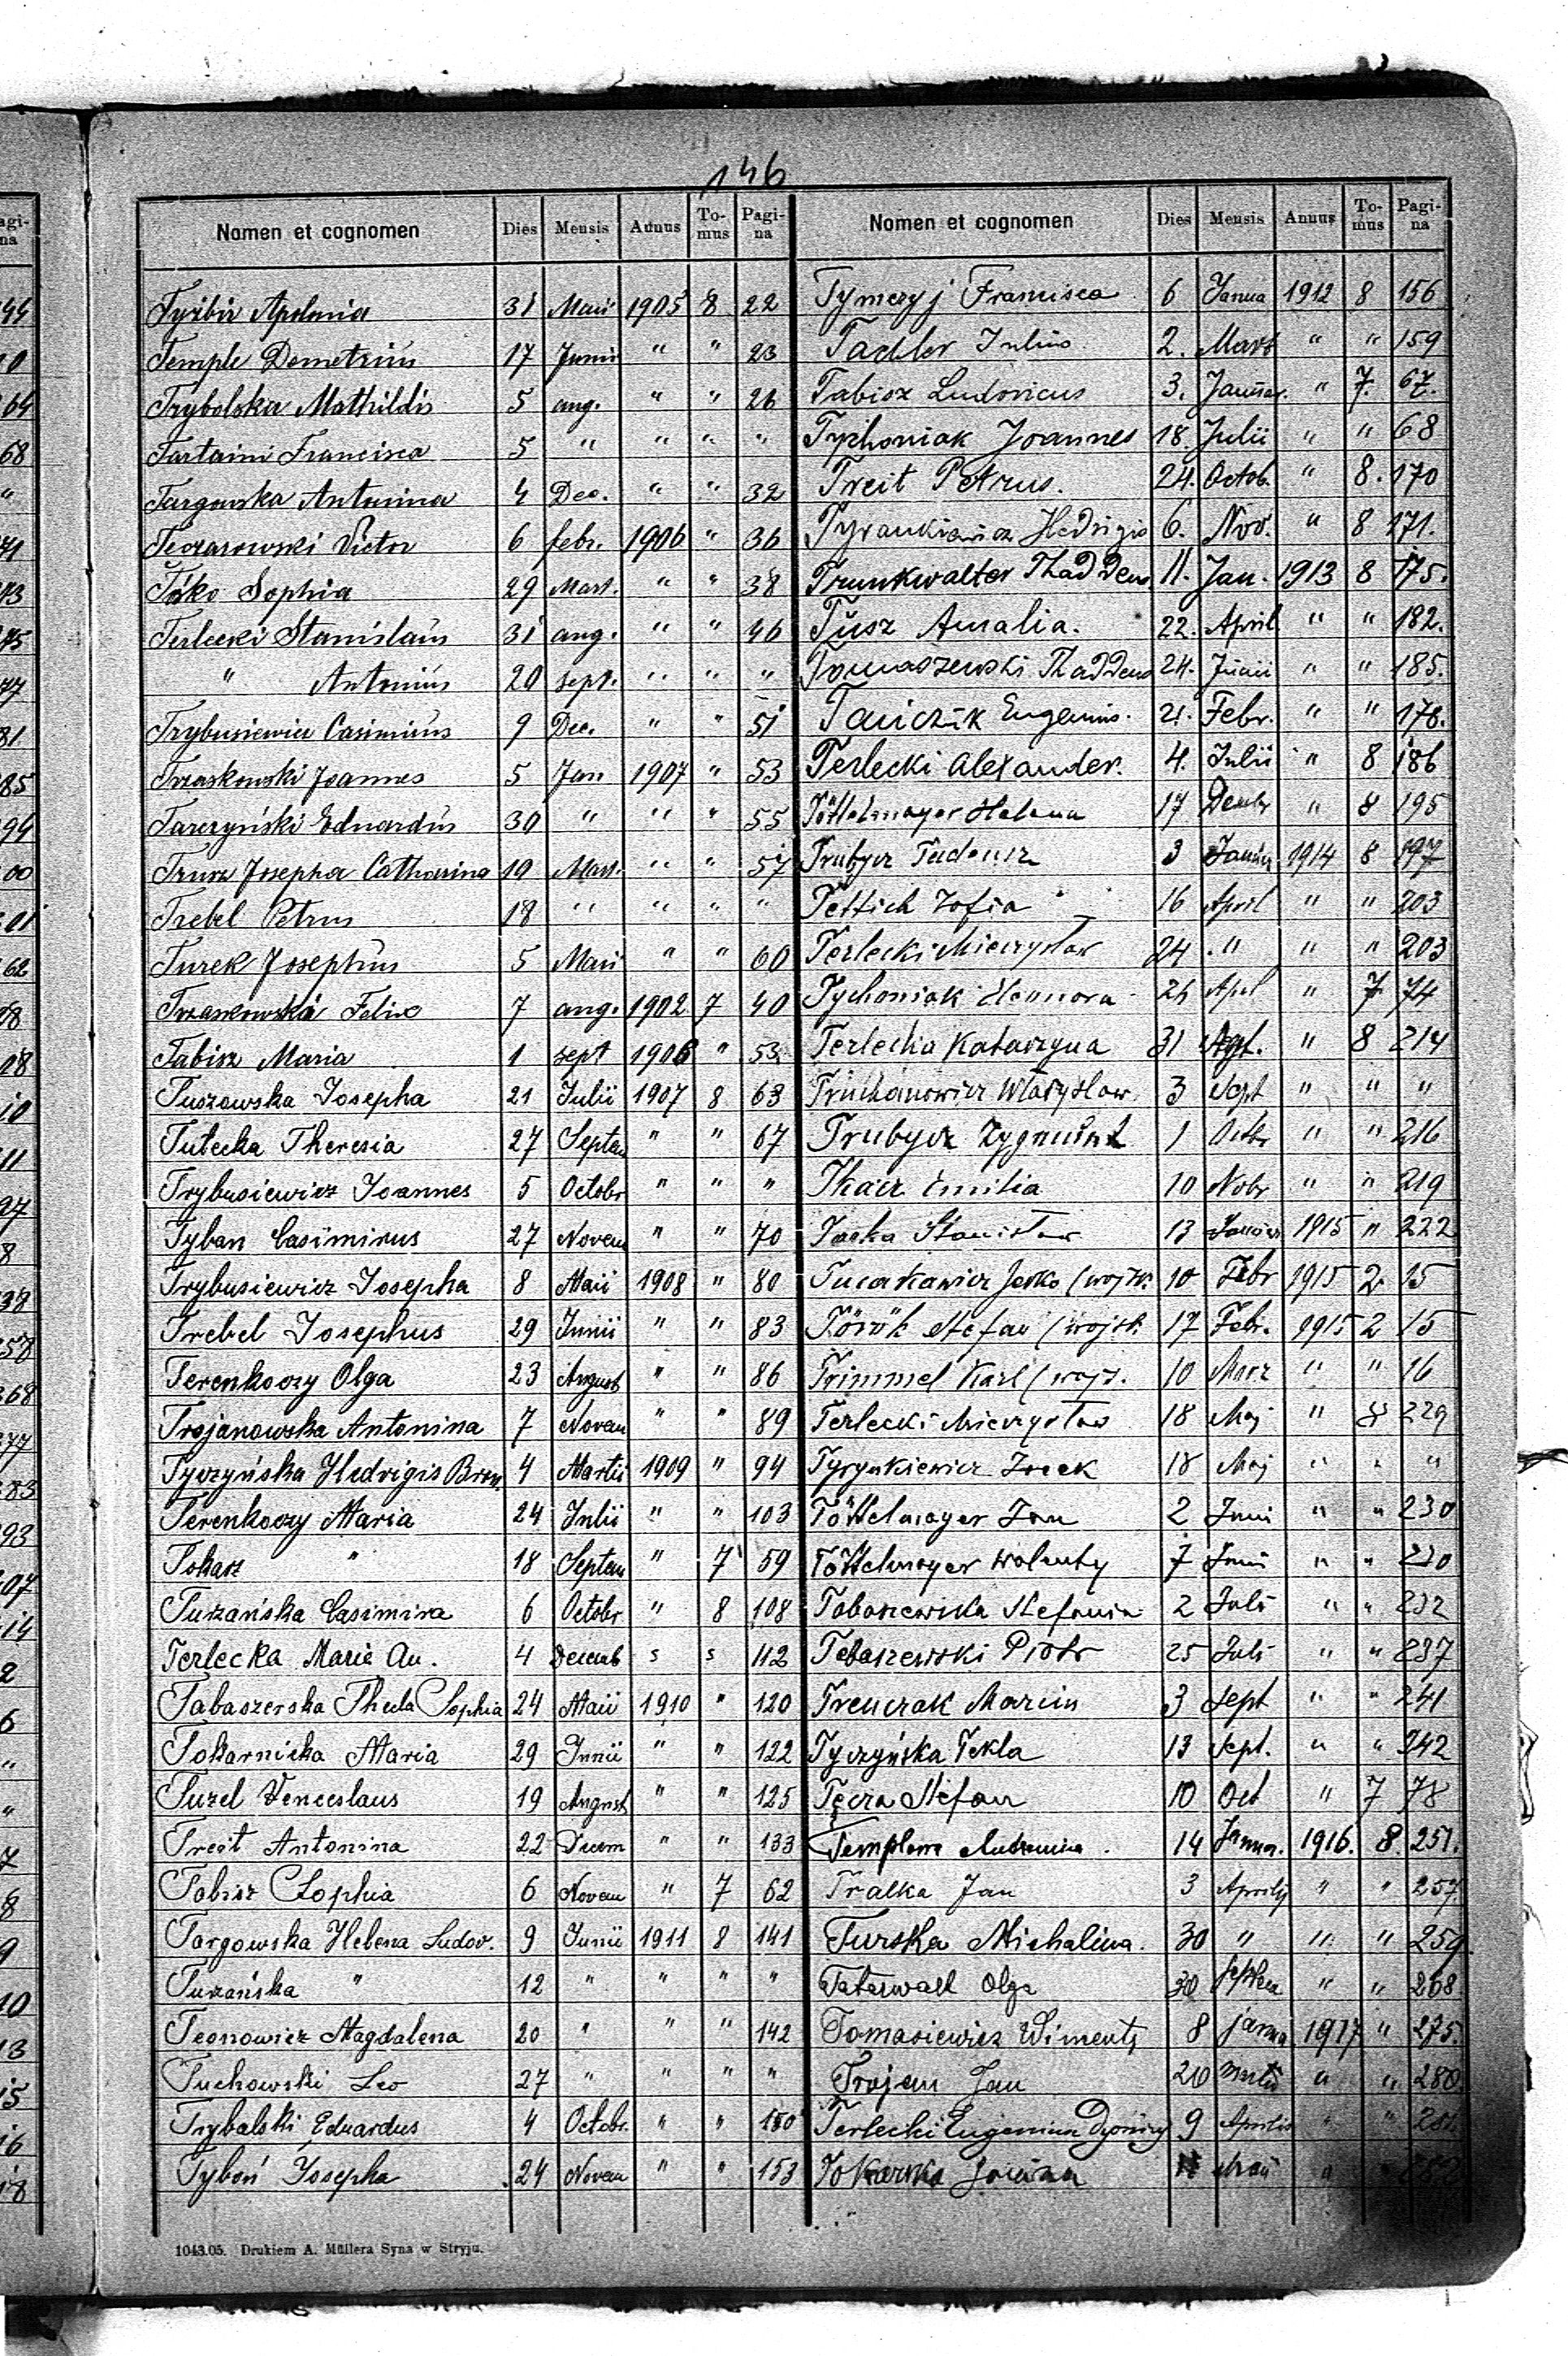 146
Nomen et cognomen Dies Mensis Annus To-mus Pagi-na
Tyżbir Apolonia 31 Maii 1905 8 22
Temple Demetrius 17 Junii " " 23
Trybolska Mathildis 5 aug. " " 26
Tartaini Francisca 5 " " " "
Targowska Antonina 4 Dec. " " 32
Teczarowski Victor 6 febr. 1906 " 36
Táko Sophia 29 Mart. " " 38
Terlecki Stanislaus 31 aug. " " 46
" Antonius 20 sept. " " "
Trybusiewicz Casimirus 9 Dec. " " 51
Trzaskowski Joannes 5 Jan 1907 " 53
Tarczyński Eduardus 30 " " " 55
Trusz Josepha Catharina 19 Mart. " " 57
Trebel Petrus 18 " " " "
Turek Josephus 5 Maii " " 60
Trzaskowska Felix 7 aug. 1902 7 40
Tabisz Maria 1 sept 1906 " 53
Tuszowska Josepha 21 Julii 1907 8 63
Tutecka Theresia 27 Septem " " 67
Trybusiewicz Joannes 5 Octobr " " "
Tyban Casimirus 27 Novem " " 70
Trybusiewicz Josepha 8 Maii 1908 " 80
Trebel Josephus 29 Junii " " 83
Terenkoczy Olga 23 August " " 86
Trojanowska Antonina 7 Novem " " 89
Tyczyńska Hedvigis Bron. 4 Martii 1909 " 94
Terenkoczy Maria 24 Julii " " 103
Tokarz " 18 Septem " 7 59
Turzańska Casimira 6 Octobr " 8 108
Terlecka Marie An. 4 Decemb s s 112
Tabaszerska Thecla Sophia 24 Maii 1910 " 120
Tokarnicka Maria 29 Junii " " 122
Tuzel Venceslaus 19 August " " 125
Treit Antonina 22 Decem " " 133
Tobisz Sophia 6 Novem " 7 62
Targowska Helena Ludov. 9 Junii 1911 8 141
Turzańska " 12 " " " "
Teonowicz Magdalena 20 " " " 142
Tuchowski Leo 27 " " " "
Trybalski Eduardus 4 Octobr. " " 150
Tyboń Josepha 24 Novem " " 153
Nomen et cognomen Dies Mensis Annus To-mus Pagi-na
Tymczyj Francisca 6 Janua 1912 8 156
Tadler Julius 2. Mart " " 159
Tabisz Ludovicus 3. Januar. " 7. 67.
Tyzhoniak Joannes 18. Julii " " 68
Treit Petrus. 24. Octob. " 8. 170
Hedvigis 6. Nov. " 8 171.
Trunkwalter Thaddeus 11. Jan. 1913 8 175.
Tusz Amalia. 22. April " " 182.
Tomaszewski Thaddeus 24. Junii " " 185.
Tańczuk Eugenius. 21. Febr. " " 178.
Terlecki Alexander. 4. Julii " 8 186
Töttelmayer Helena 17 Decembr " 8 195
Trubycz Tadeusz 3 Januar 1914 8 197
Tettich Zofia 16 April " " 203
Terlecki Mieczysław 24 " " " 203
Tychoniak Eleonora 26 Apl " 7 74
Terlecka Katarzyna 31 Agt. " 8 214
Truchanowicz Władysław 3 Sept " " "
Trubycz Zygmunt 1 Octbr " " 216
Tkacz Emilia 10 Nobr " " 219
Taska Stanisław 13 Januar 1915 " 222
Jerko (wojsk. 10 Febr 1915 2 15
Török Stefan (wojsk. 17 Febr. 1915 2 15
Trimmel Karl (wojs. 10 Marz " " 16
Terlecki Mieczysław 18 Maj " 8 229
Tyrynkiewicz Jacek 18 Maj " " "
Töttelmayer Jan 2 Juni " " 230
Töttelmayer Walenty 7 Juni " " 230
Tobaszewska Stefania 2 Juli " " 232
Tebaszewski Piotr 25 Juli " " 237
Trenczak Marcin 3 Sept " " 241
Tyczyńska Tekla 13 Sept. " " 242
Tęcza Stefan 10 Oct " 7 78
Templowa 14 Januar. 1916. 8. 251.
Tralka Jan 3 Aprilij " " 257
Turska Michalina. 30 " " " 259.
Taterwall Olga 30 " " 268.
Tomasiewicz Wimenty 8 janua 1917 " 275.
Trojan Jan 20 " " 280.
Terlecki Eugeniusz Dyonizy 9 Aprilis " "
Maii " "
1043.05. Drukiem A. Müllera Syna w Stryju.